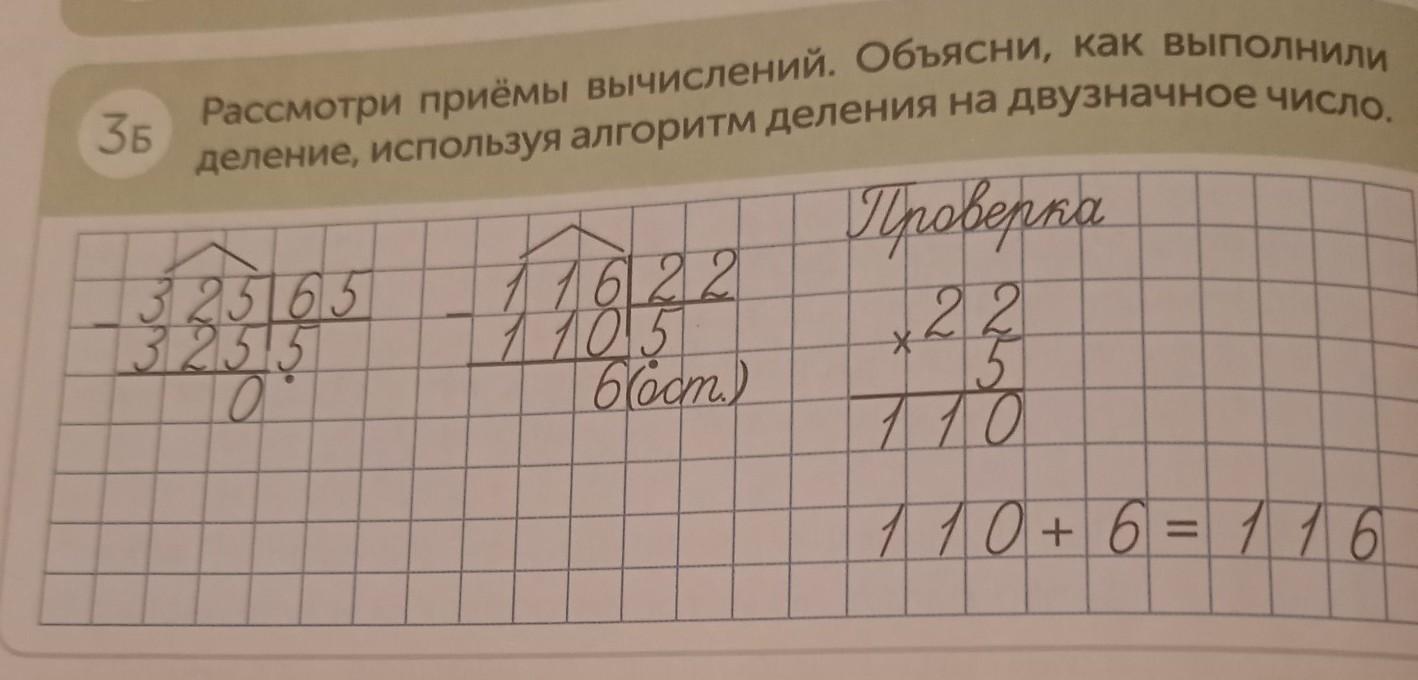 3Б
Рассмотри приёмы вычислений. Объясни, как выполнили
деление, используя алгоритм деления на двузначное число.
- 325 65
325 5
0
- 116 22
110 5
6(ост.)
Проверка
× 22
5
110
110 + 6 = 116